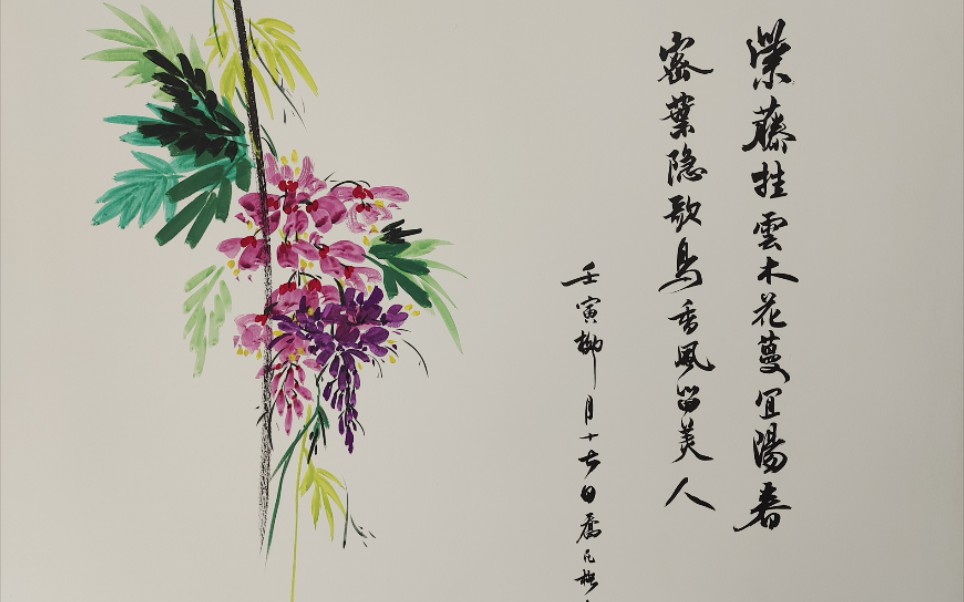 紫藤挂雲木花蔓宜陽春
密葉隐歌鳥香風留美人
壬寅柳月十七日喬凡